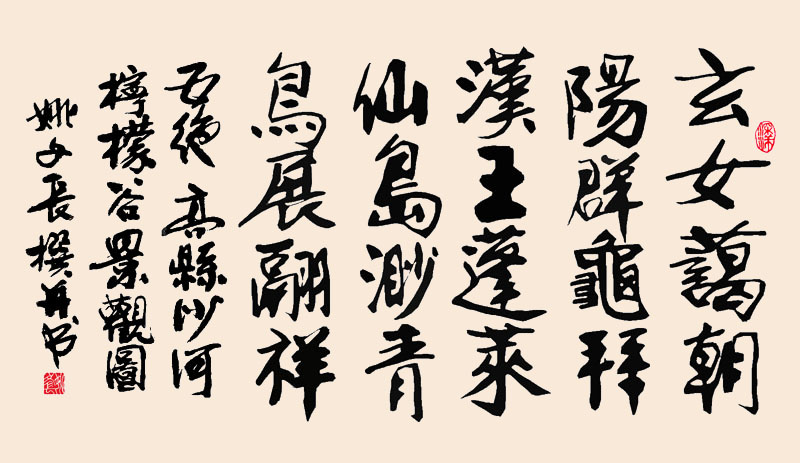 玄女謁朝
陽群龜拜
漢王蓬萊
仙島渺青
鳥展翮祥
五绝 高縣沙河
檸檬谷景觀圖
姚文長撰并书